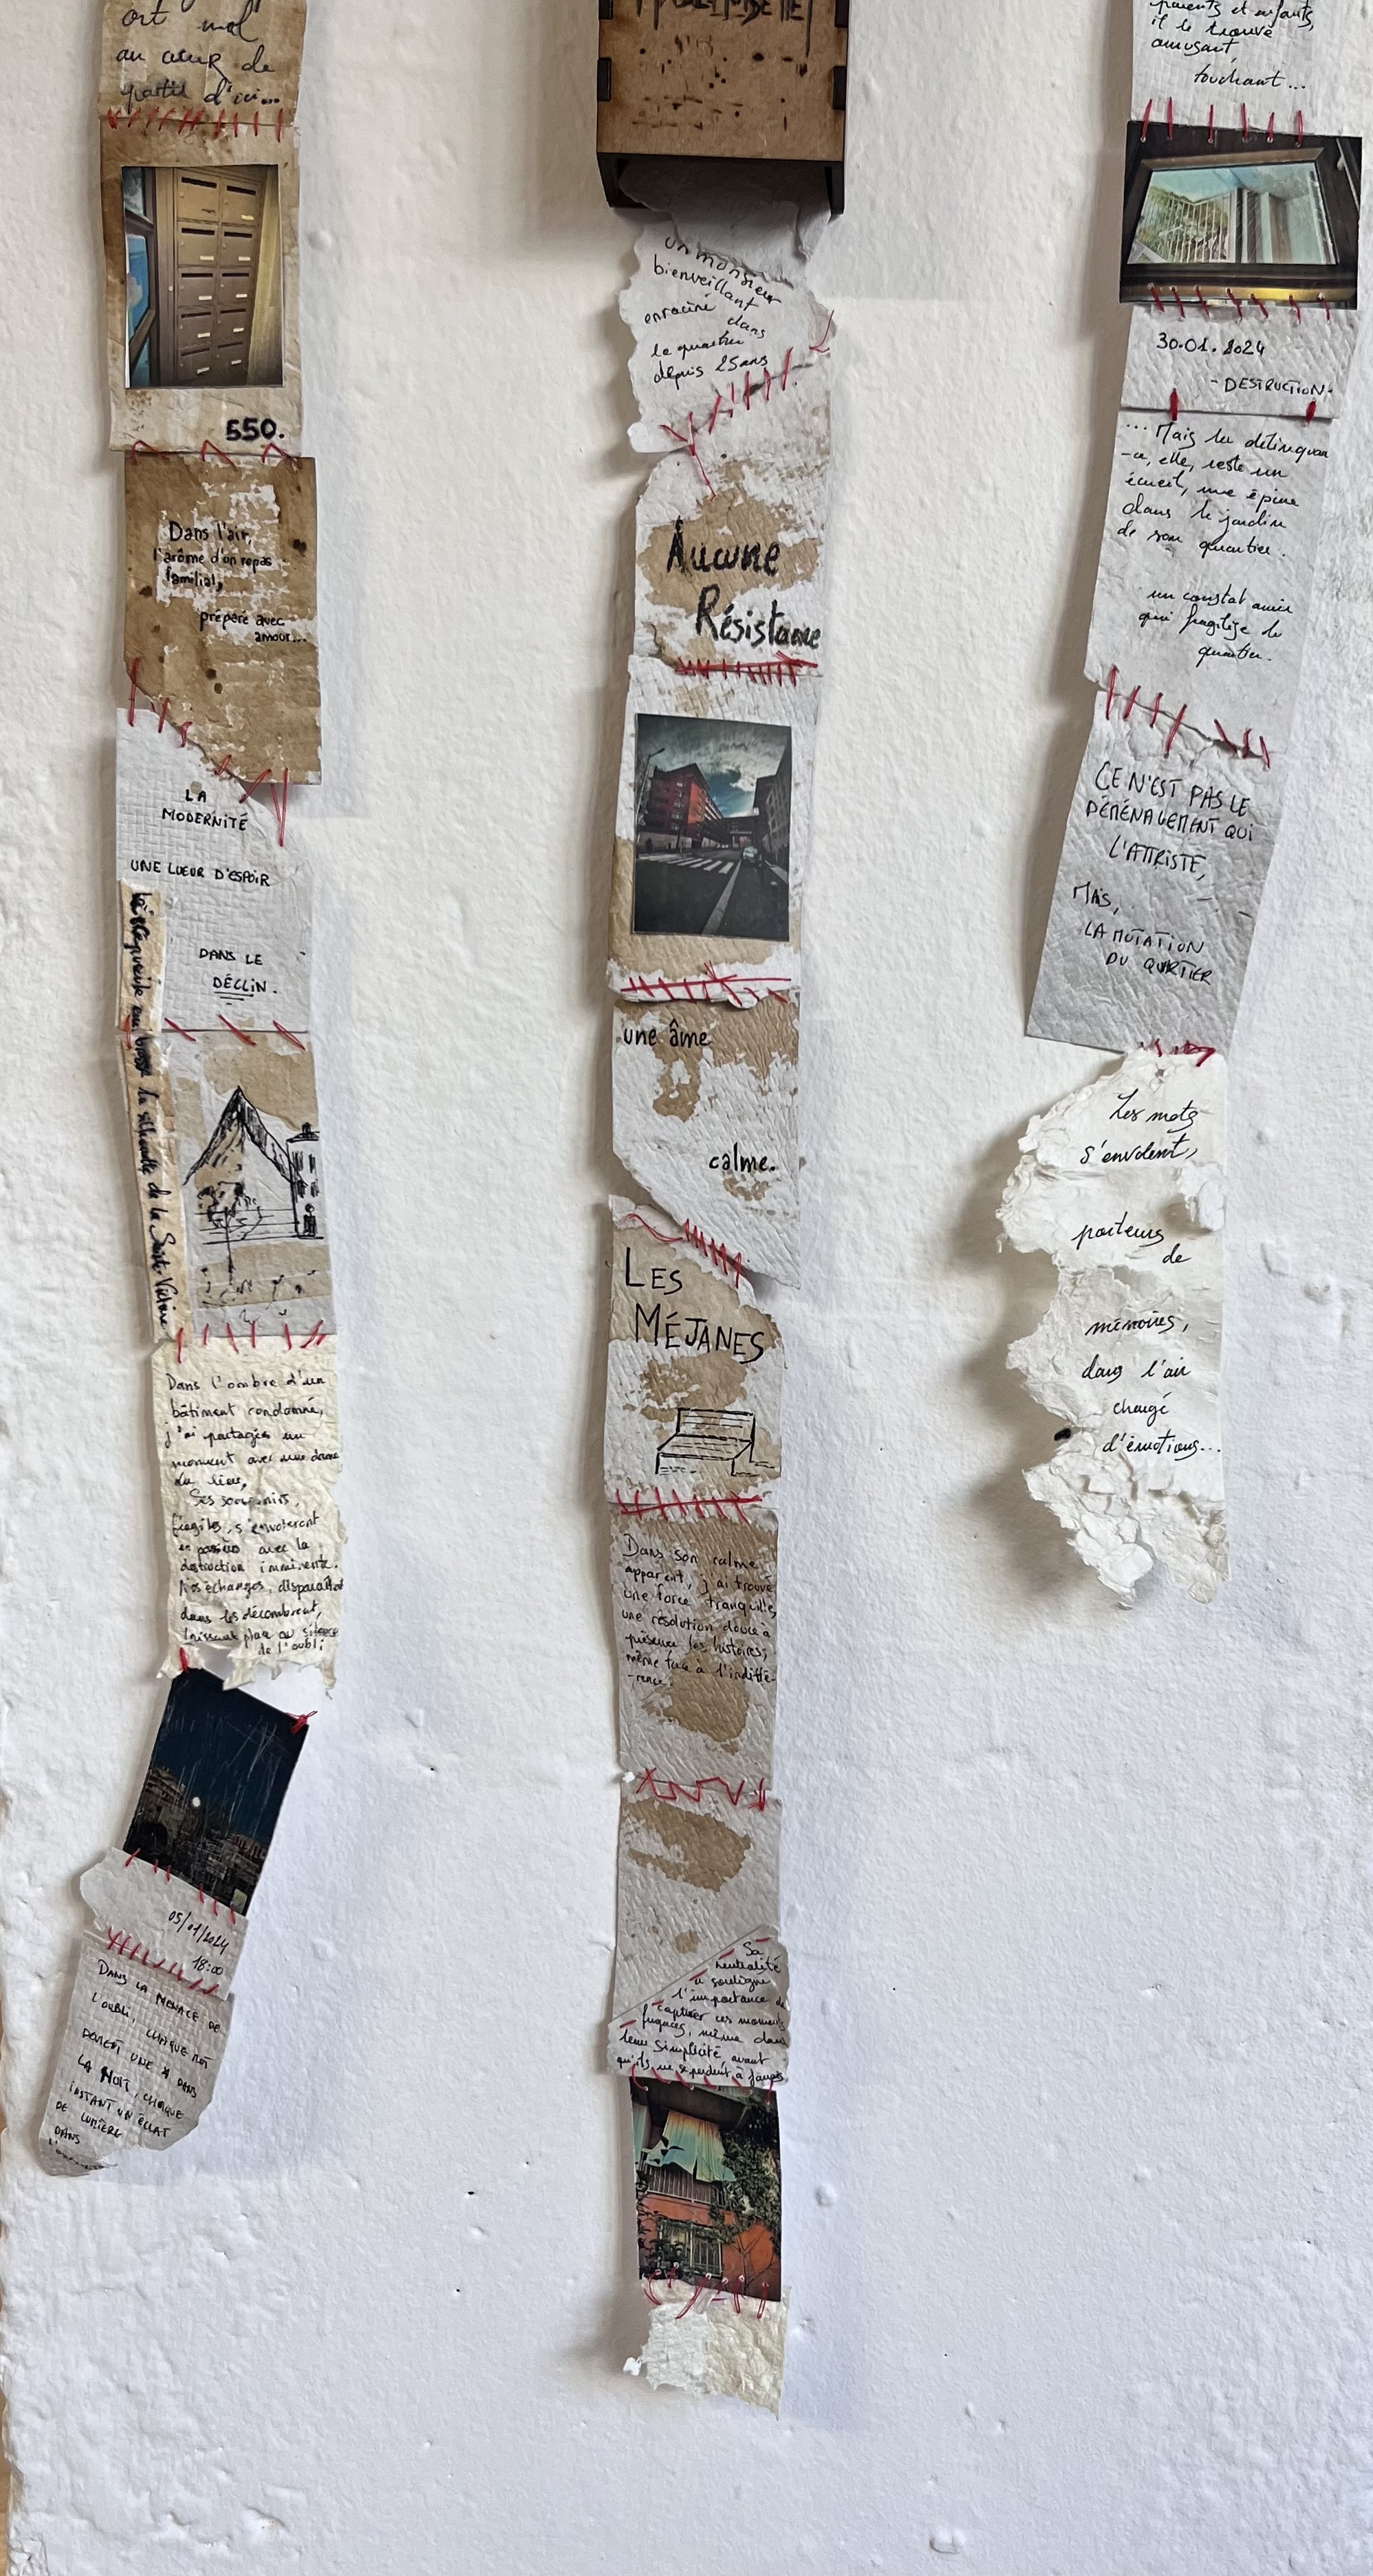 ont mal
au cœur de
partir d'ici...
550.
Dans l'air,
l'arôme d'un repas
familial,
préparé avec
amour...
LA
MODERNITÉ
UNE LUEUR D'ESPOIR
DANS LE
DÉCLIN.
la silhouette de la Sainte Victoire
Dans l'ombre d'un
bâtiment condamné,
j'ai partagés un
moment avec une dame
du lieu,
Ses souvenirs,
fragiles, s'envoleront
en poussière avec la
destruction imminente.
Nos échanges, disparaîtront
dans les décombres,
laissant place au silence
de l'oubli
05/01/2024
18:00
DANS LA MENACE DE
L'OUBLI, CHAQUE MOT
DEVIENT UNE * DANS
LA NUIT, CHAQUE
INSTANT UN ÉCLAT
DE LUMIÈRE
DANS
un monsieur
bienveillant
enraciné dans
le quartier
depuis 25 ans
Aucune
Résistance
une âme
calme.
LES
MÉJANES
Dans son calme
apparent, j'ai trouvé
une force tranquille,
une résolution douce à
préserver les histoires,
même face à l'indiffé-
-rence.
Sa
neutralité
a souligné
l'importance de
capturer ces moments
fugaces, même dans
leur simplicité avant
qu'ils ne se perdent à jamais
parents et enfants,
il le trouve
amusant,
touchant...
30.01.2024
-DESTRUCTION-
... Mais la délinquan
-ce, elle, reste un
écueil, une épine
dans le jardin
de son quartier.
un constat amer
qui fragilise le
quartier.
CE N'EST PAS LE
DÉMÉNAGEMENT QUI
L'ATTRISTE,
MAIS,
LA MUTATION
DU QUARTIER
Les mots
s'envolent,
porteurs
de
mémoires,
dans l'air
chargé
d'émotions...